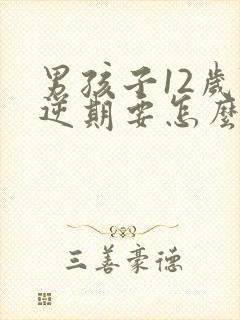 男孩子12歲
逆期要怎麼
三善豪德